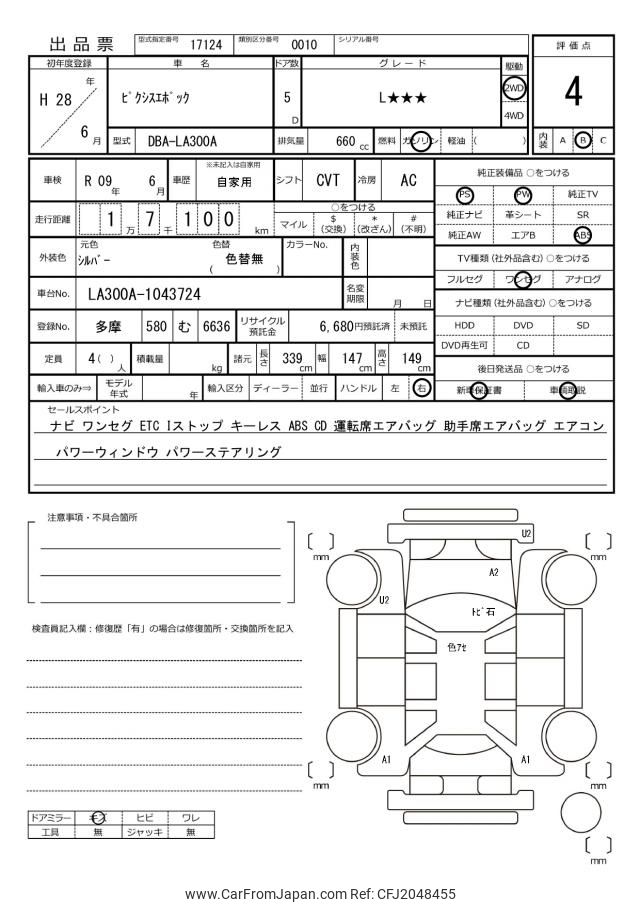 出品票 型式指定番号 17124 類別区分番号 0010 シリアル番号
評価点
4
初年度登録 車名 ドア数 グレード 駆動
H 28 年 6 月
ピクシスエポック 5 D L★★★ 2WD 4WD
型式 DBA-LA300A 排気量 660 cc 燃料 ガソリン 軽油 ( )
内装 A B C
車検 R 09 年 6 月 車歴 ※未記入は自家用 自家用 シフト CVT 冷房 AC
走行距離 1 万 7 千 1 0 0 km
○をつける
マイル $(交換) *(改ざん) #(不明)
外装色 元色 シルバー 色替 ( 色替無 ) カラーNo. 内装色
車台No. LA300A-1043724 名変期限 月 日
登録No. 多摩 580 む 6636 リサイクル預託金 6,680円預託済 未預託
定員 4( ) 人 積載量 kg 諸元 長さ 339 cm 幅 147 cm 高さ 149 cm
輸入車のみ⇒ モデル年式 年 輸入区分 ディーラー 並行 ハンドル 左 右
純正装備品 ○をつける
PS PW 純正TV
純正ナビ 革シート SR
純正AW エアB ABS
TV種類 (社外品含む) ○をつける
フルセグ ワンセグ アナログ
ナビ種類 (社外品含む) ○をつける
HDD DVD SD
DVD再生可 CD
後日発送品 ○をつける
新車保証書 車輌取説
セールスポイント
ナビ ワンセグ ETC Iストップ キーレス ABS CD 運転席エアバッグ 助手席エアバッグ エアコン
パワーウィンドウ パワーステアリング
注意事項・不具合箇所
検査員記入欄：修復歴「有」の場合は修復箇所・交換箇所を記入
ドアミラー キズ ヒビ ワレ
工具 無 ジャッキ 無
U2
A2
U2
トビ石
色アセ
A1
A1
mm
mm
mm
mm
mm
www.CarFromJapan.com Ref: CFJ2048455